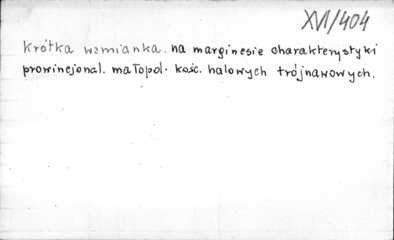 XVI/404
Krótka wzmianka. na marginesie charakterystyki
prowincjonal. małopol. kośc. halowych trójnawowych.